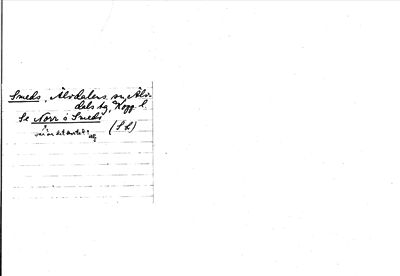 Smeds, Älvdalens sn, Älv-
dals tg, Kopp. l.
Se Norr å Smeds
(SL)